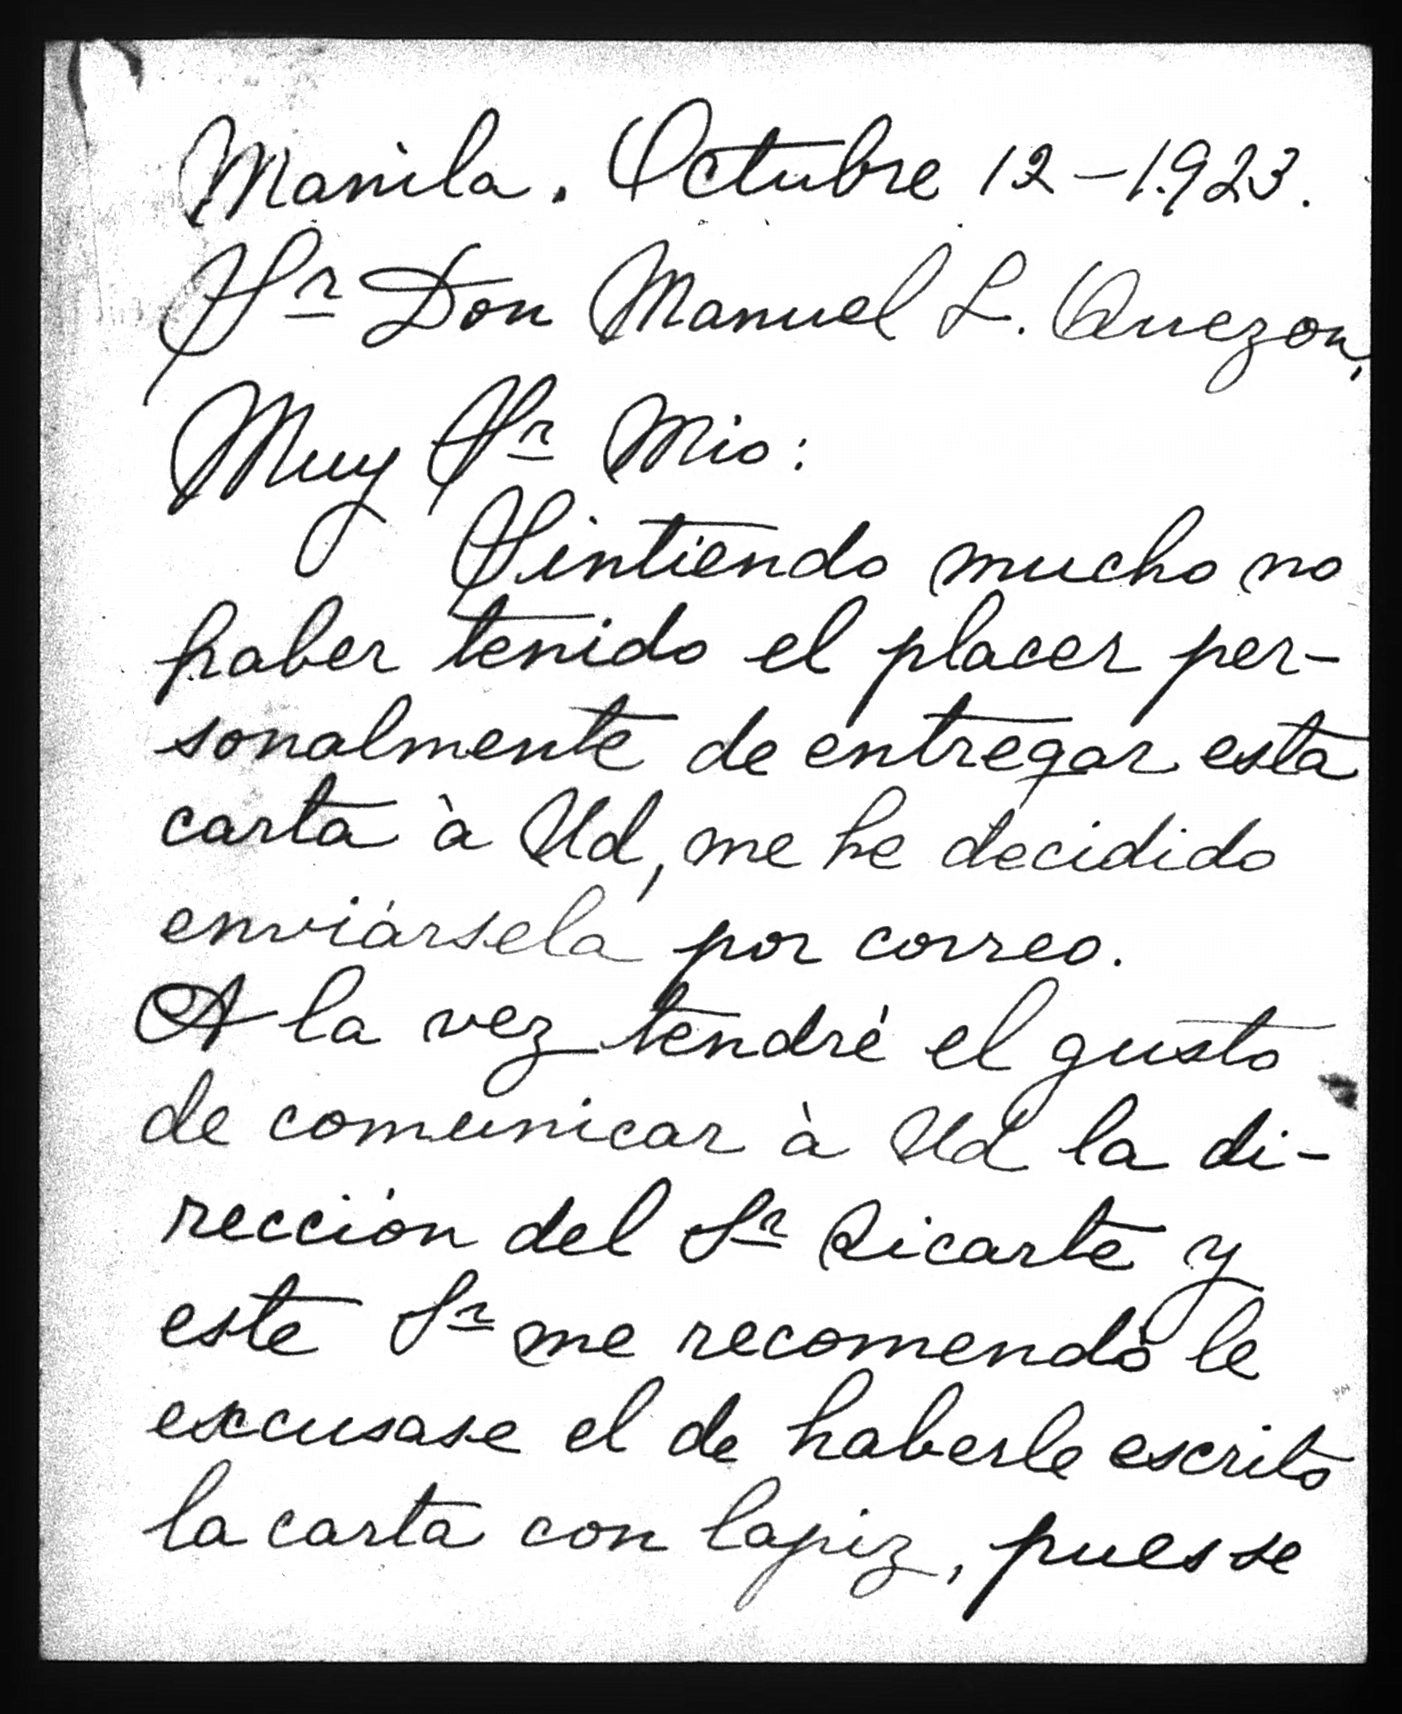 Manila. Octubre 12-1.923.
Sr Don Manuel L. Quezon,
Muy Sr Mio:
Sintiendo mucho no
haber tenido el placer per-
sonalmente de entregar esta
carta à Ud, me he decidido
enviársela por correo.
A la vez tendré el gusto
de comunicar à Ud la di-
rección del Sr Ricarte y
este Sr me recomendó le
excusase el de haberle escrito
la carta con lapiz, pues se